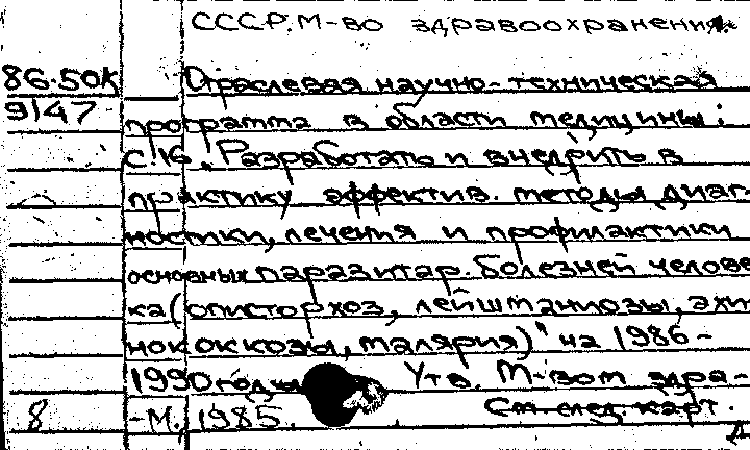 СССР. М-во здравоохранения.
86-50К Отраслевая научно-техническая
9147 программа в области медицины:
С.16 „Разработать и внедрить в
практику эффектив. методы диаг-
ностики, лечения и профилактики
основных паразитар. болезней челове-
ка (описторхоз, лейшманиозы, эхи-
нококкозы, малярия)" на 1986-
1990 годы Утв. М-вом здра-
8 -М., 1985. См. след. карт.